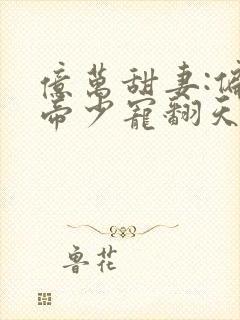 億萬甜妻:偏
帝少寵翻天
魯花